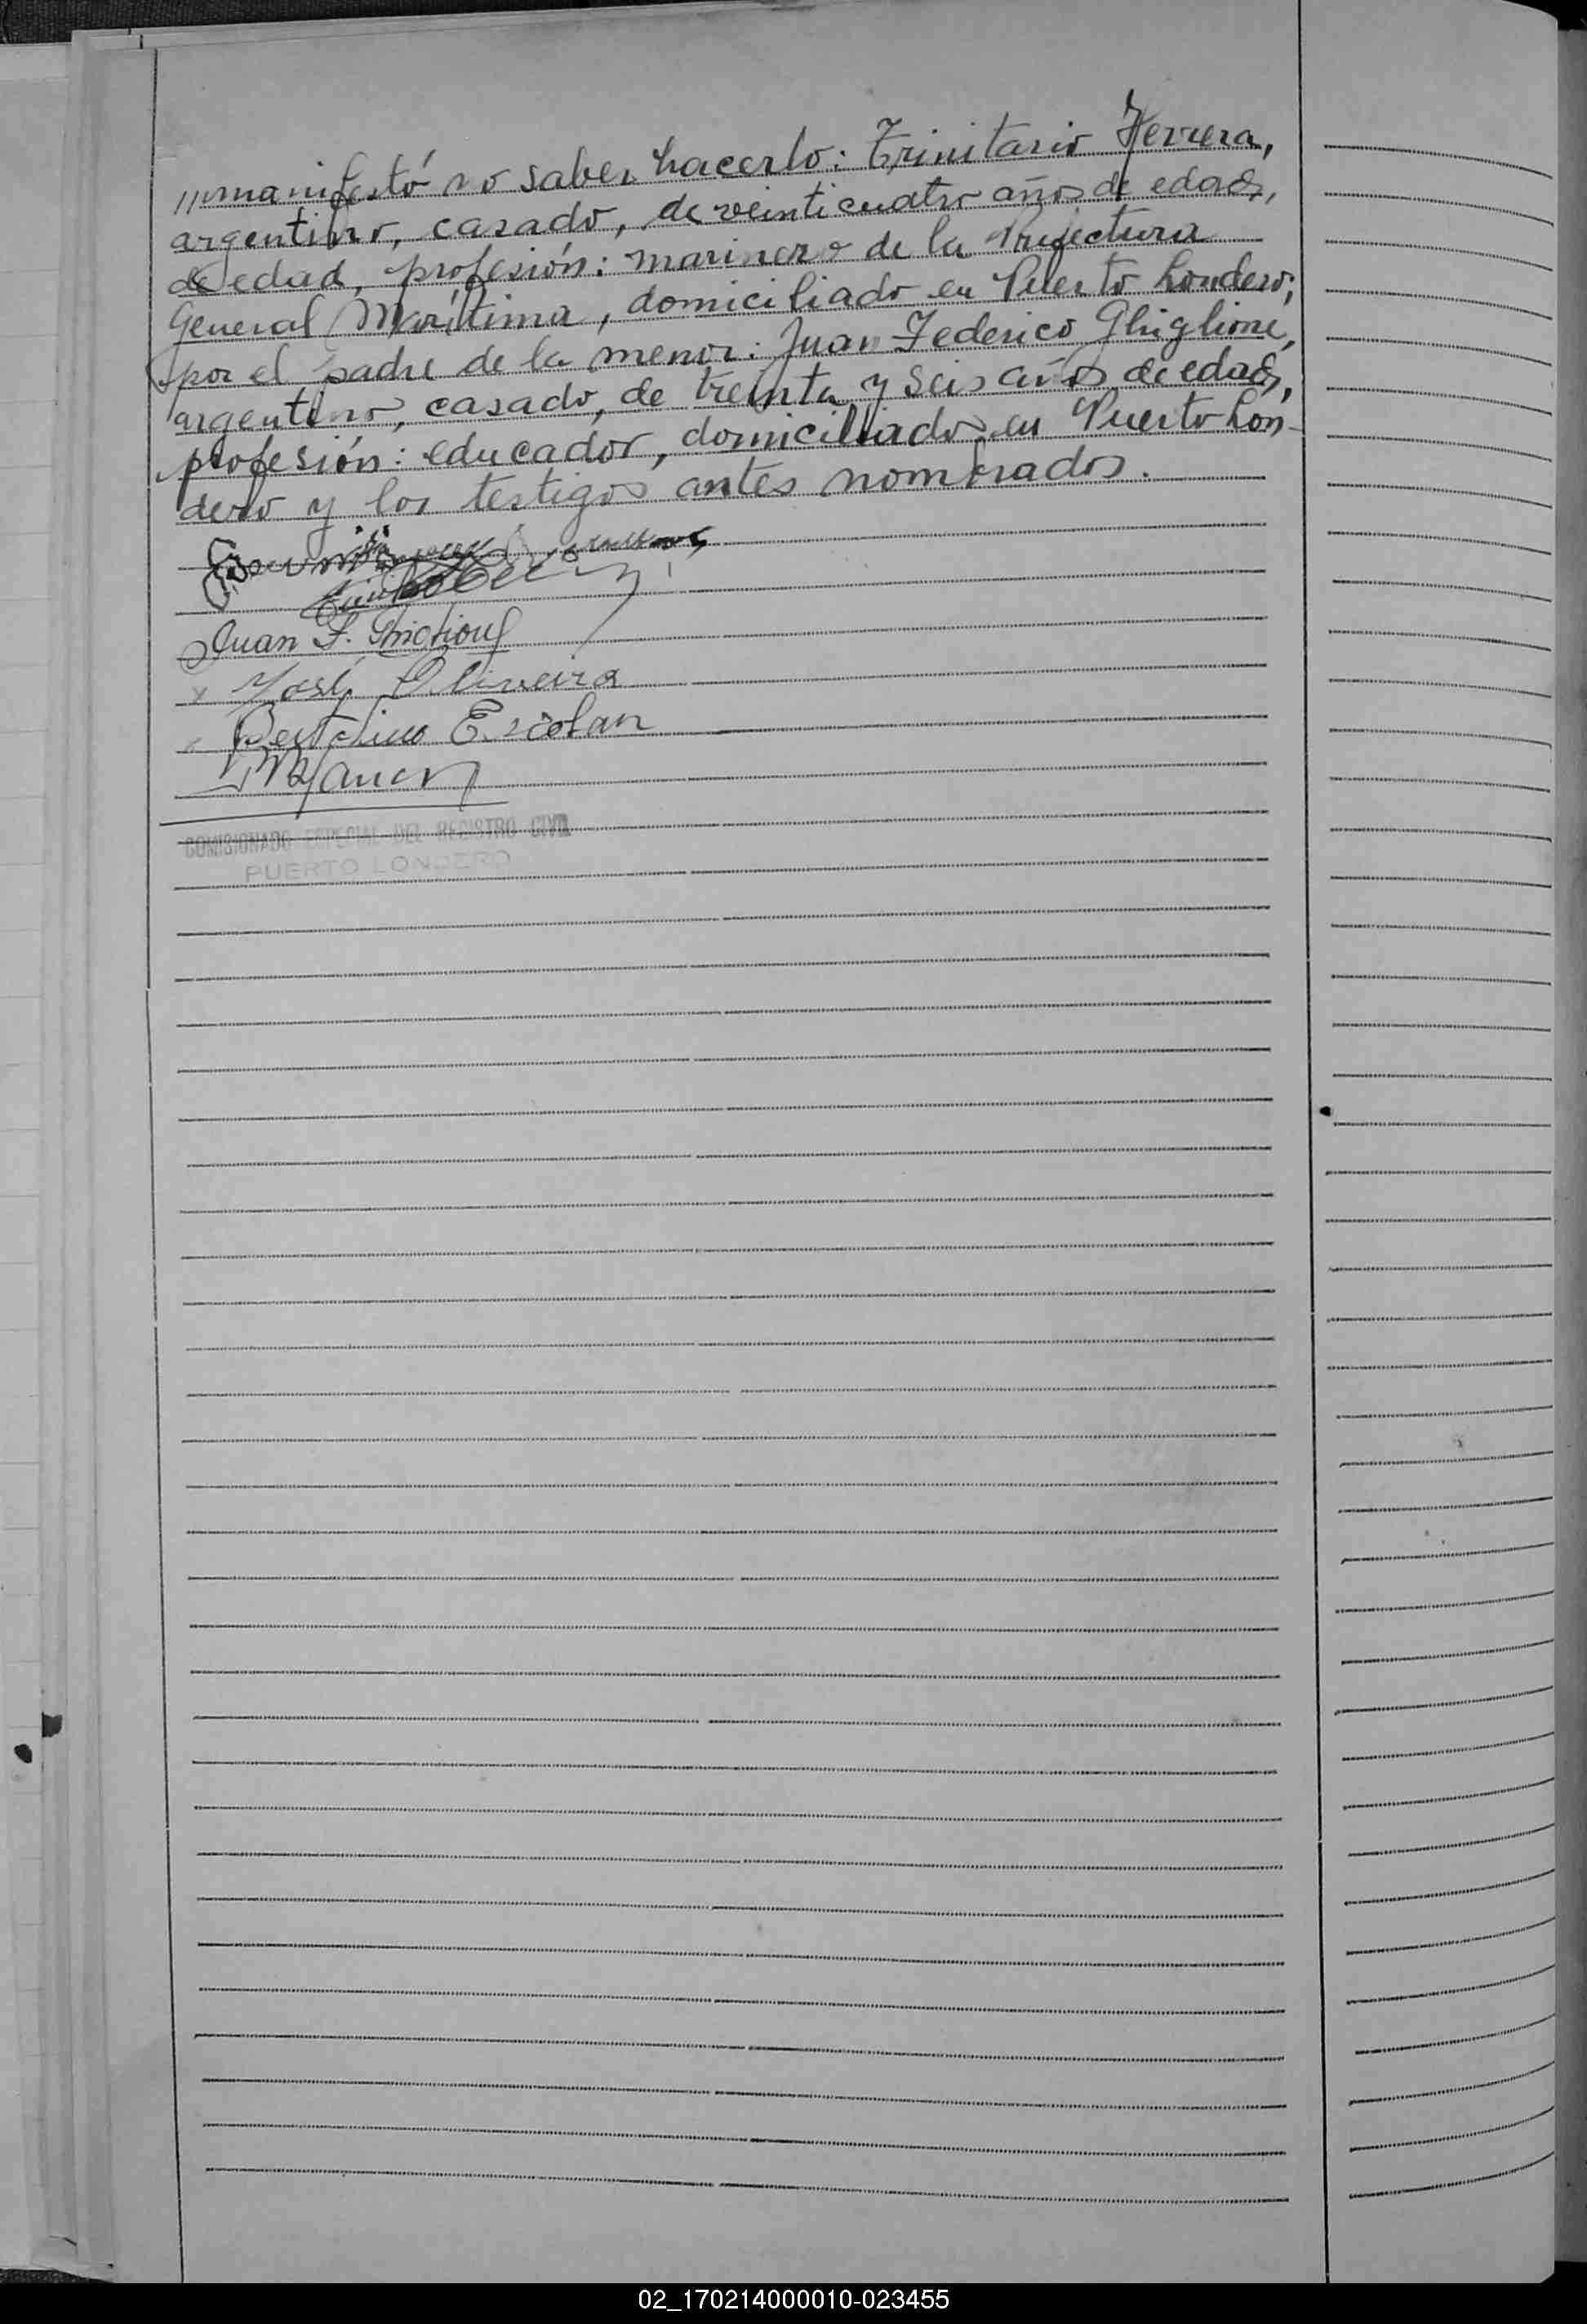 ///manifestó no saber hacerlo: Trinitario Herrera,
argentino, casado, de veinticuatro años de edad,
de edad, profesión: marinero de la Prefectura
General Marítima, domiciliado en Puerto Londero;
por el padre de la menor: Juan Federico Ghiglione,
argentino, casado, de treinta y seis años de edad,
profesión: educador, domiciliado en Puerto Lon-
dero y los testigos antes nombrados.
Juan F. Ghiglione
x José Oliveira
Escolar
COMISIONADO ESPECIAL DEL REGISTRO CIVIL
PUERTO LONDERO
02_170214000010-023455